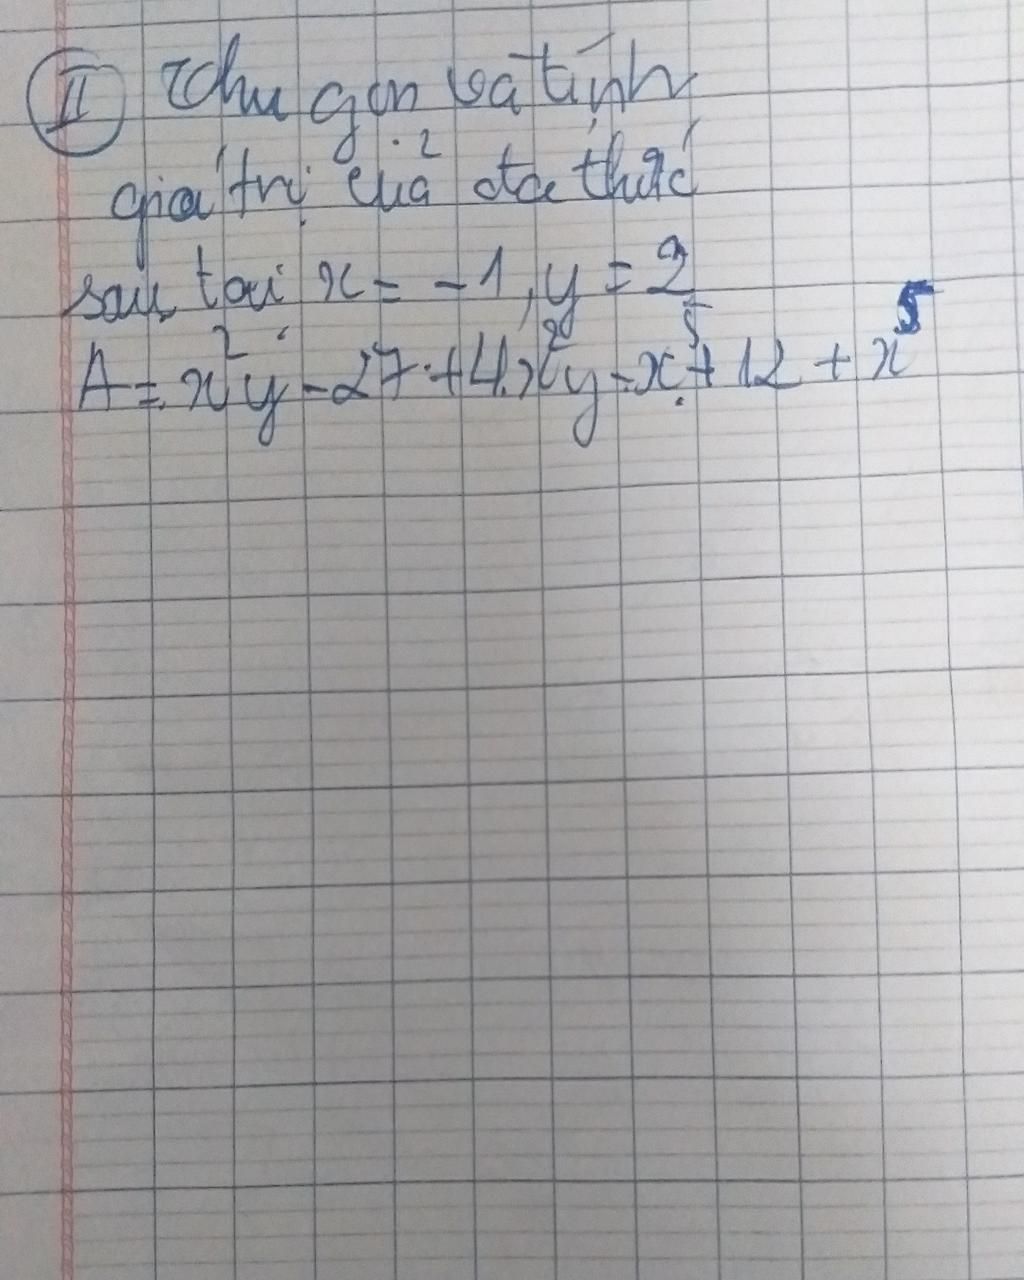 II Thu gọn và tính
giá trị của đa thức
sau tại x = -1, y = 2
A = x²y - 27 + 4x²y - x⁵ + 12 + x⁵